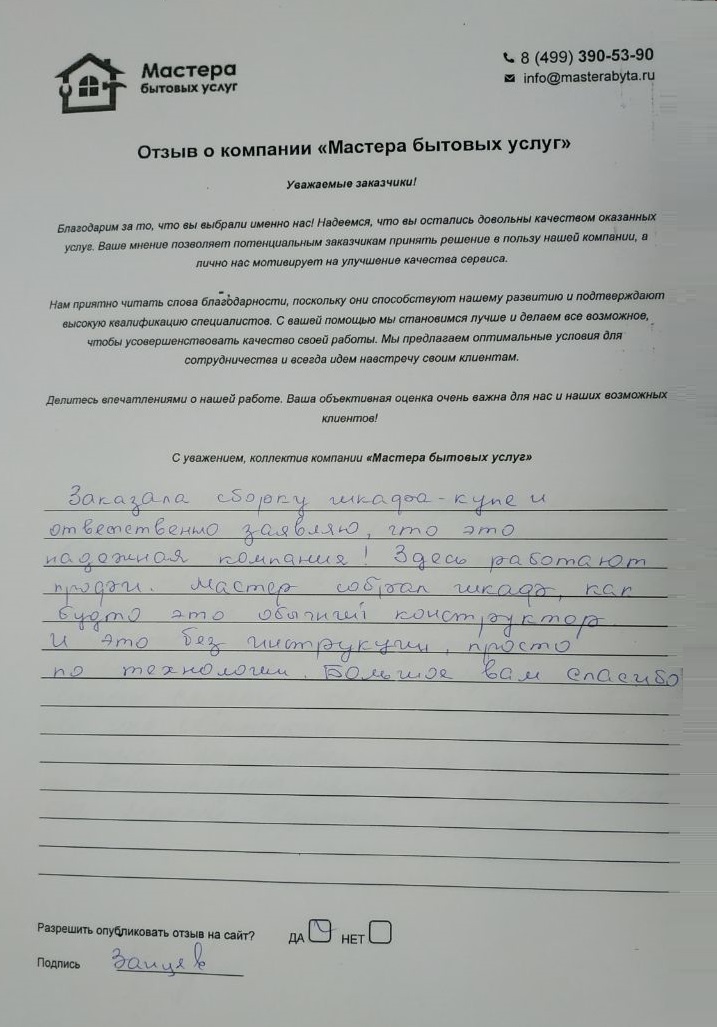 Мастера
бытовых услуг
8 (499) 390-53-90
info@masterabyta.ru
Отзыв о компании «Мастера бытовых услуг»
Уважаемые заказчики!
Благодарим за то, что вы выбрали именно нас! Надеемся, что вы остались довольны качеством оказанных
услуг. Ваше мнение позволяет потенциальным заказчикам принять решение в пользу нашей компании, а
лично нас мотивирует на улучшение качества сервиса.
Нам приятно читать слова благодарности, поскольку они способствуют нашему развитию и подтверждают
высокую квалификацию специалистов. С вашей помощью мы становимся лучше и делаем все возможное,
чтобы усовершенствовать качество своей работы. Мы предлагаем оптимальные условия для
сотрудничества и всегда идем навстречу своим клиентам.
Делитесь впечатлениями о нашей работе. Ваша объективная оценка очень важна для нас и наших возможных
клиентов!
С уважением, коллектив компании «Мастера бытовых услуг»
Заказала сборку шкафа-купе и
ответственно заявляю, что это
надежная компания! Здесь работают
профи. Мастер собрал шкаф, как
будто это обычный конструктор
И это без инструкции, просто
по технологии. Большое вам спасибо
Разрешить опубликовать отзыв на сайт? ДА НЕТ
Подпись Зайцев